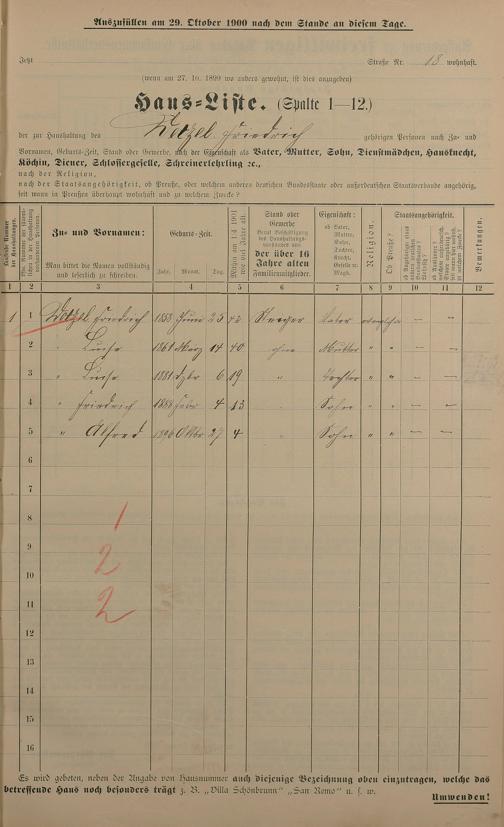 Auszufüllen am 29. Oktober 1900 nach dem Stande an diesem Tage.
Jetzt Straße Nr. 18 wohnhaft.
(wenn am 27. 10. 1899 wo anders gewohnt, ist dies anzugeben)
Haus=Liste. (Spalte 1—12.)
der zur Haushaltung des Friedrich gehörigen Personen nach Zu= und
Vornamen, Geburts=Zeit, Stand oder Gewerbe, nach der Eigenschaft als Vater, Mutter, Sohn, Dienstmädchen, Hausknecht,
Köchin, Diener, Schlossergeselle, Schreinerlehrling ꝛc.,
nach der Religion,
nach der Staatsangehörigkeit, ob Preuße, oder welchem anderen deutschen Bundesstaate oder außerdeutschen Staatsverbande angehörig,
seit wann in Preußen überhaupt wohnhaft und zu welchem Zwecke?
Zu= und Vornamen:
Man bittet die Namen vollständig und leserlich zu schreiben.
Geburts=Zeit.
Jahr. Monat. Tag.
Stand oder Gewerbe
der über 16 Jahre alten Familienmitglieder.
Eigenschaft:
ob Vater, Mutter, Sohn, Tochter, Knecht, Geselle w. Magd.
Religion.
Ob Preuße?
Staatsangehörigkeit.
Bemerkungen.
1 2 3 4 5 6 7 8 9 10 11 12
1 1 Friedrich 1858 Juni 23 42 Vater — —
2 " 1861 März 14 40 ohne Mutter " " — —
3 " 1881 6 19 " Tochter " " — —
4 " Friedrich 1888 4 13 Sohn " " — —
5 " Alfred 1896 Oktbr 27 4 " Sohn " " — —
6
7
8 1
9 2
10
11 2
12
13
14
15
16
Es wird gebeten, neben der Angabe von Hausnummer auch diejenige Bezeichnung oben einzutragen, welche das
betreffende Haus noch besonders trägt z. B. „Villa Schönbrunn“ „San Remo“ u. s. w.
Umwenden!